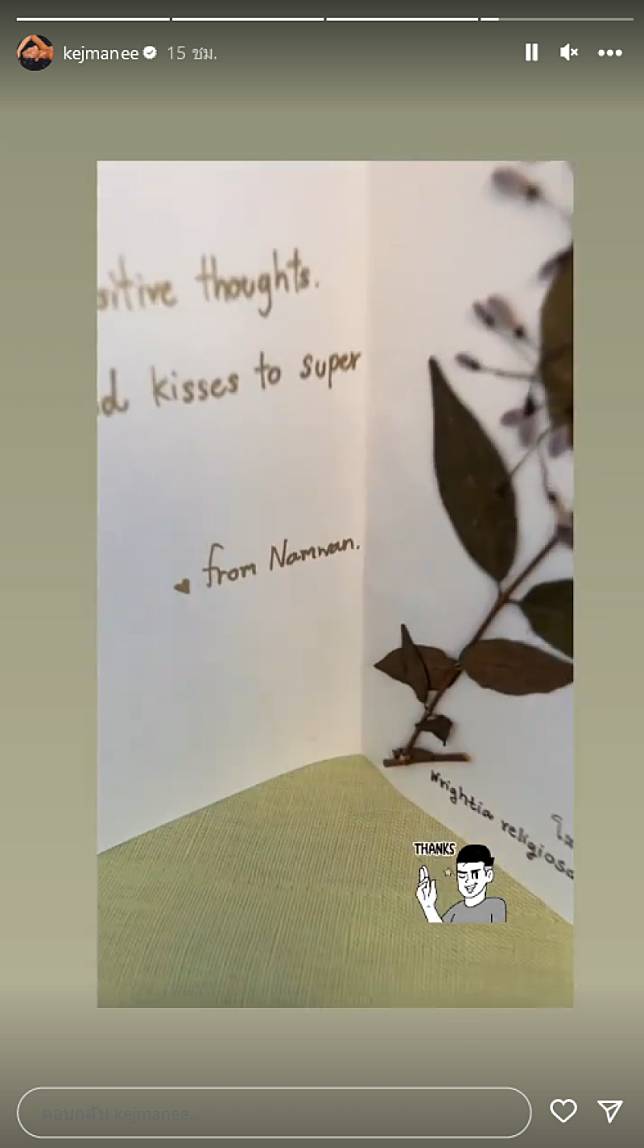 kejmanee 15 ชม.
sitive thoughts.
d kisses to super
♥ from Namwan.
Wrightia religiosa
THANKS
ตอบกลับ kejmanee...